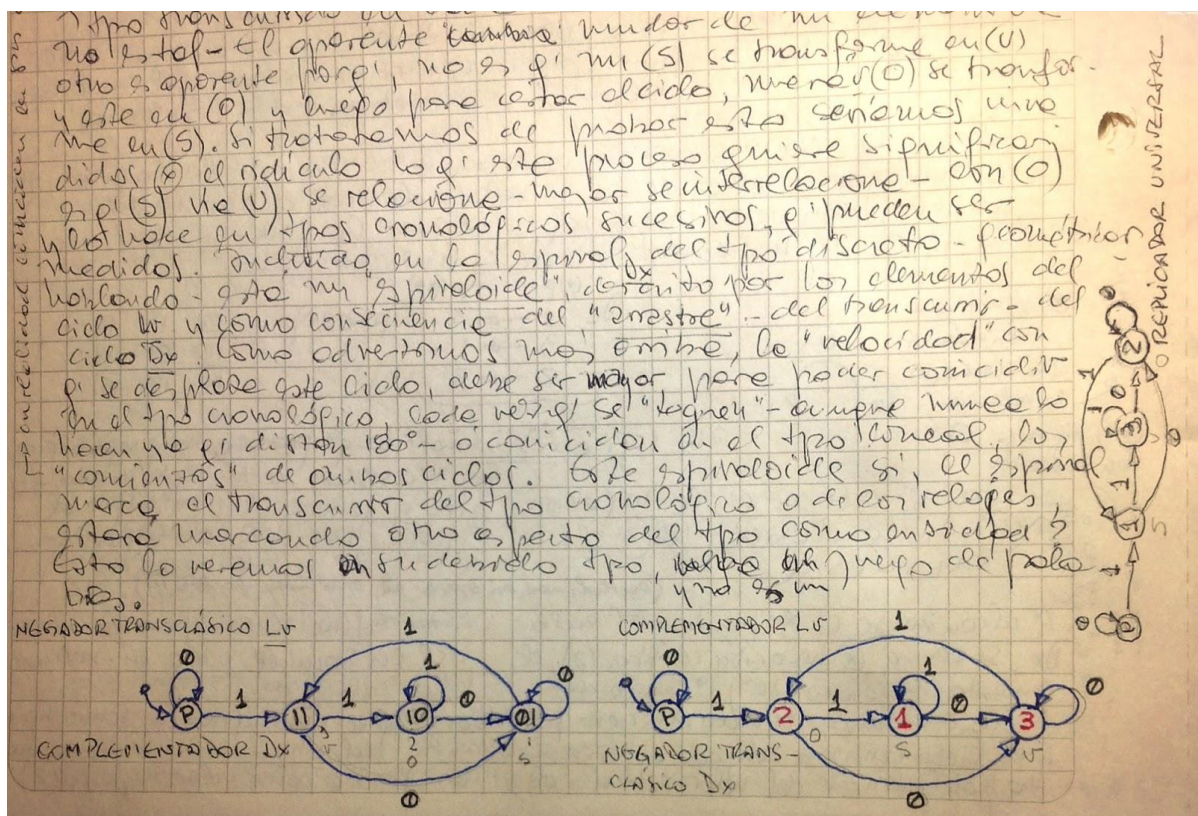 no es tal - El aparente mudar de un elemento a
otro es aparente porq', no es q' un (S) se transforme en (U)
y este en (O) y luego para cerrar el ciclo, menēr (O) se transfor-
me en (S). Si tratáramos de probar esto seríamos inva
didos (x) el ridículo lo q' este proceso quiere significar,
es q' (S) vía (U), se relacione - mejor se interrelacione - con (O)
y lo hace en tpos cronológicos sucesivos, q' pueden ser
medidos. Incluído en la espiral, del tpo discreto - geométrica
hablando - está un "espiraloide", descrito por los elementos del
ciclo Lv y como consecuencia del "arrastre" - del transcurrir - del
ciclo Dx. Como advertimos mas arriba, la "velocidad" con
q' se desplaza este ciclo, debe ser mayor para poder coincidir
en el tpo cronológico, cada vez q' se "tognen" - aunque nunca lo
hacen ya q' distan 180° - o coinciden en el tpo lineal, los
"comienzos" de ambos ciclos. Este espiraloide si, el espiral
marca el transcurrir del tpo cronológico o de los relojes,
estará marcando otro aspecto del tpo como entidad?
Esto lo veremos en su debido tpo, y no es un juego de pala
bras.
NEGADOR TRANSCLÁSICO Lv
COMPLEMENTADOR Lv
0 1 1 1 0 1 0 0
P 11 10 01
3 2 1
U O S
COMPLEMENTADOR Dx
0 1 1 1 0 1 0 0
P 2 1 3
O S U
NEGADOR TRANS-
CLÁSICO Dx
O REPLICADOR UNIVERSAL
0 P 1 1 1 3 0 1 2 0 1 0
S